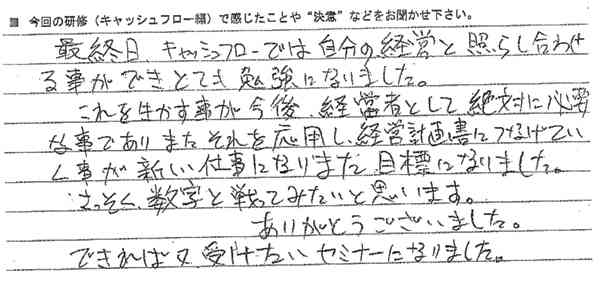 ■ 今回の研修（キャッシュフロー編）で感じたことや“決意”などをお聞かせ下さい。
最終日、キャッシュフローでは自分の経営と照らし合わせ
る事ができとても勉強になりました。
これを生かす事が今後、経営者として絶対に必要
な事でありまたそれを応用し、経営計画書につなげてい
く事が新しい仕事になりまた目標になりました。
さっそく、数字と戦ってみたいと思います。
ありがとうございました。
できれば又、受けたいセミナーになりました。